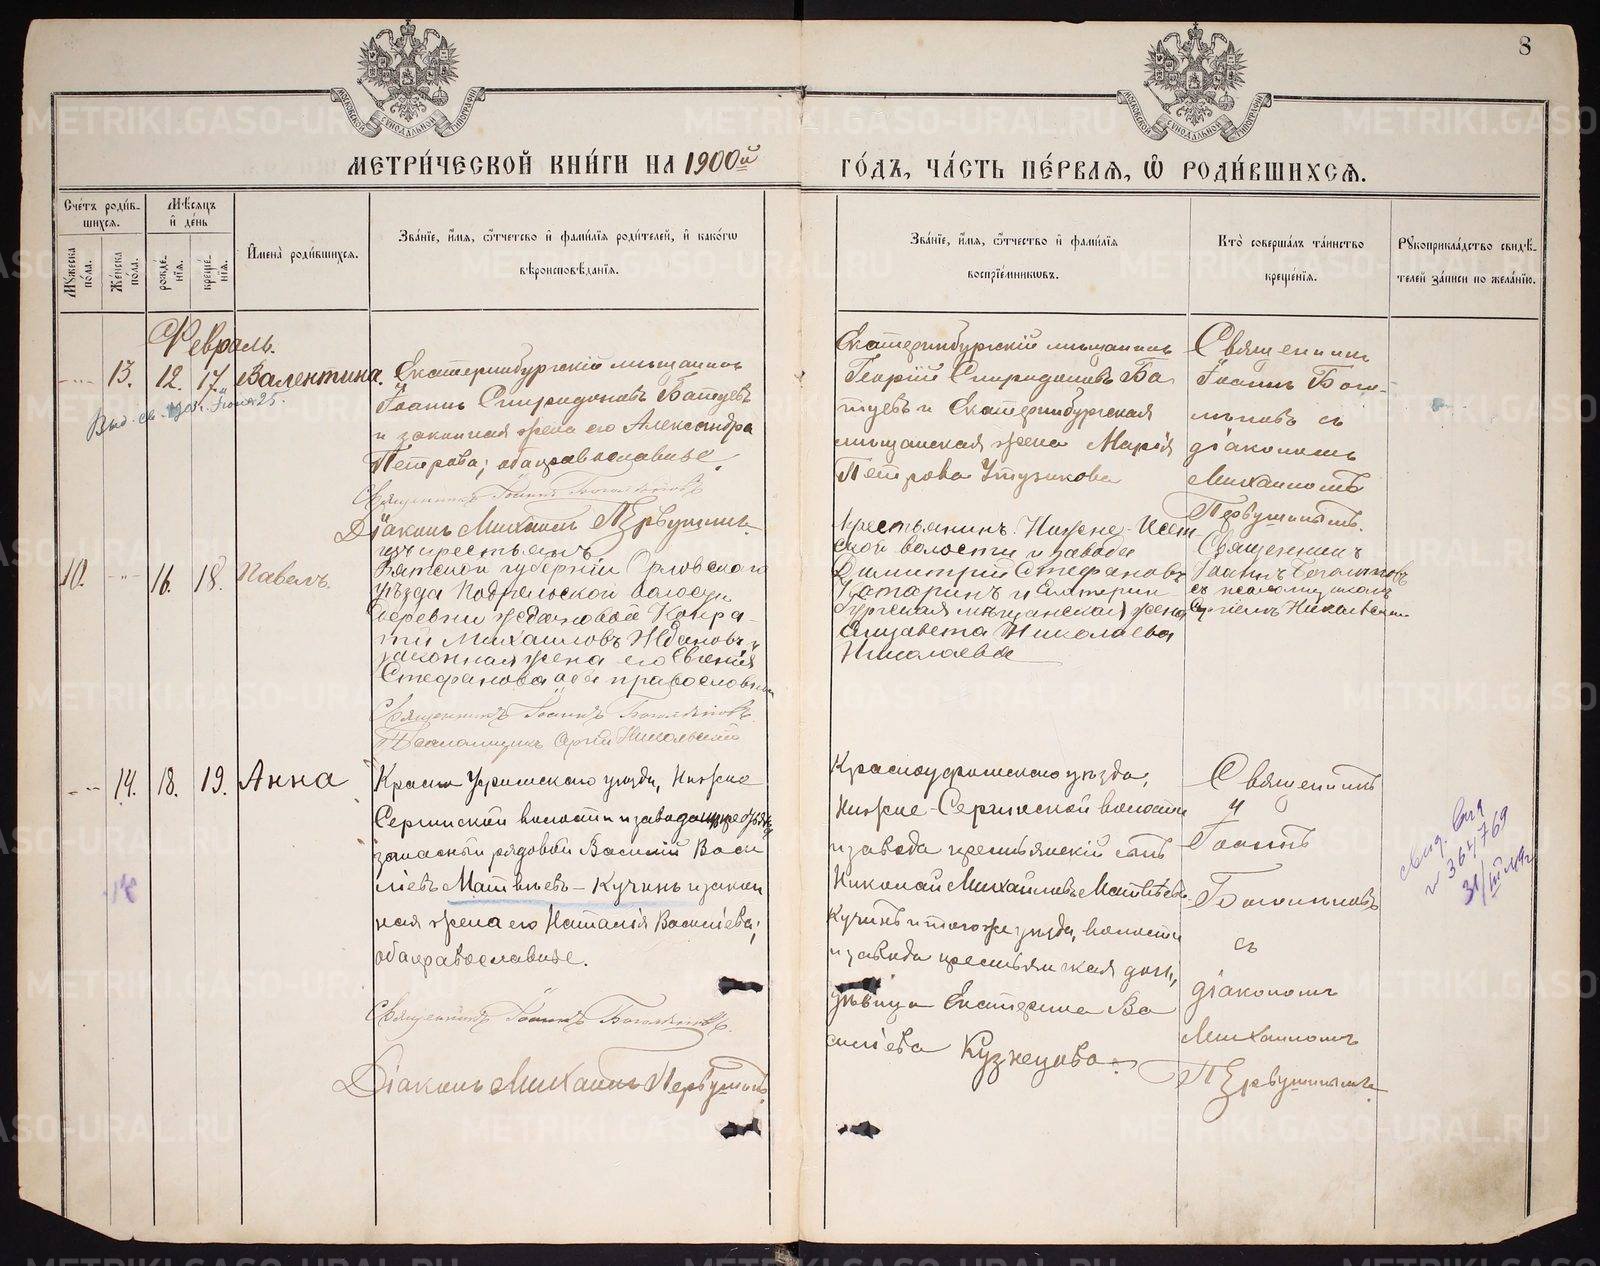 8
МОСКОВСКОЙ СѴНОДАЛЬНОЙ ТИПОГРАФІИ
МОСКОВСКОЙ СѴНОДАЛЬНОЙ ТИПОГРАФІИ
МЕТРИ́ЧЕСКОЙ КНИ́ГИ НА 1900й
ГО́ДЪ, ЧА́СТЬ ПЕ́РВАЯ, Ѽ РОДИ́ВШИХСЯ.
Сче́тъ роди́в-
шихся.
Мѣ́сяцъ
и де́нь
Му́жеска
по́ла.
Же́нска
по́ла.
рожде́-
нія.
креще́-
нія.
Имена̀ роди́вшихся.
Зва́ніе, и́мя, ѻ́тчество и фами́лія роди́телей, и како́гѡ
вѣроисповѣ́данія.
Зва́ніе, и́мя, ѻ́тчество и фами́лія
воспріе́мникѡвъ.
Кто̀ соверша́лъ та́инство
креще́нія.
Рꙋкоприкла́дство свидѣ́-
телей за́писи по жела́нію.
Февраль.
13. 12. 17. Валентина.
Екатеринбургскій мѣщанинъ
Іоаннъ Спиридоновъ Батуевъ
и законная жена его Александра
Петрова; оба православные.
Священникъ Іоаннъ Боголѣповъ
Діаконъ Михаилъ Первушинъ
Екатеринбургскій мѣщанинъ
Георгій Спиридоновъ Ба
туевъ и Екатеринбургская
мѣщанская жена Марія
Петрова
Священникъ
Іоаннъ Бого-
лѣповъ съ
діакономъ
Михаиломъ
Первушинымъ.
10. 16. 18. Павелъ.
изъ крестьянъ
Вятской губерніи Орловскаго
уѣзда волости
деревни Ждановой Кондра-
тій Михаиловъ Ждановъ и
законная жена его Евгенія
Стефанова оба православные
Священникъ Іоаннъ Боголѣповъ
Псаломщикъ Сергій Никольскій
Крестьянинъ Нижне-Исет
ской волости и завода
Димитрій Стефановъ
и Екатерин
бургская мѣщанская жена
Елизавета Николаева
Николаева
Священникъ
Іоаннъ Боголѣповъ
съ псаломщикомъ
Сергіемъ Никольскимъ
14. 18. 19. Анна
Красно Уфимскаго уѣзда, Нижне
Сергинской волости и завода
запасный рядовой Василій Васи
ліевъ Матвѣевъ-Кучинъ и закон
ная жена его Наталія Василіева;
оба православные.
Священникъ Іоаннъ Боголѣповъ.
Діаконъ Михаилъ Первушинъ.
Красноуфимскаго уѣзда,
Нижне-Сергинской волости
и завода крестьянскій сынъ
Николай Михайловъ Матвѣевъ
Кучинъ и того же уѣзда, волости
и завода крестьянская дочь,
дѣвица Екатерина Ва
силіева Кузнецова.
Священникъ
Іоаннъ
Боголѣповъ
съ
діакономъ
Михаиломъ
Первушинымъ.